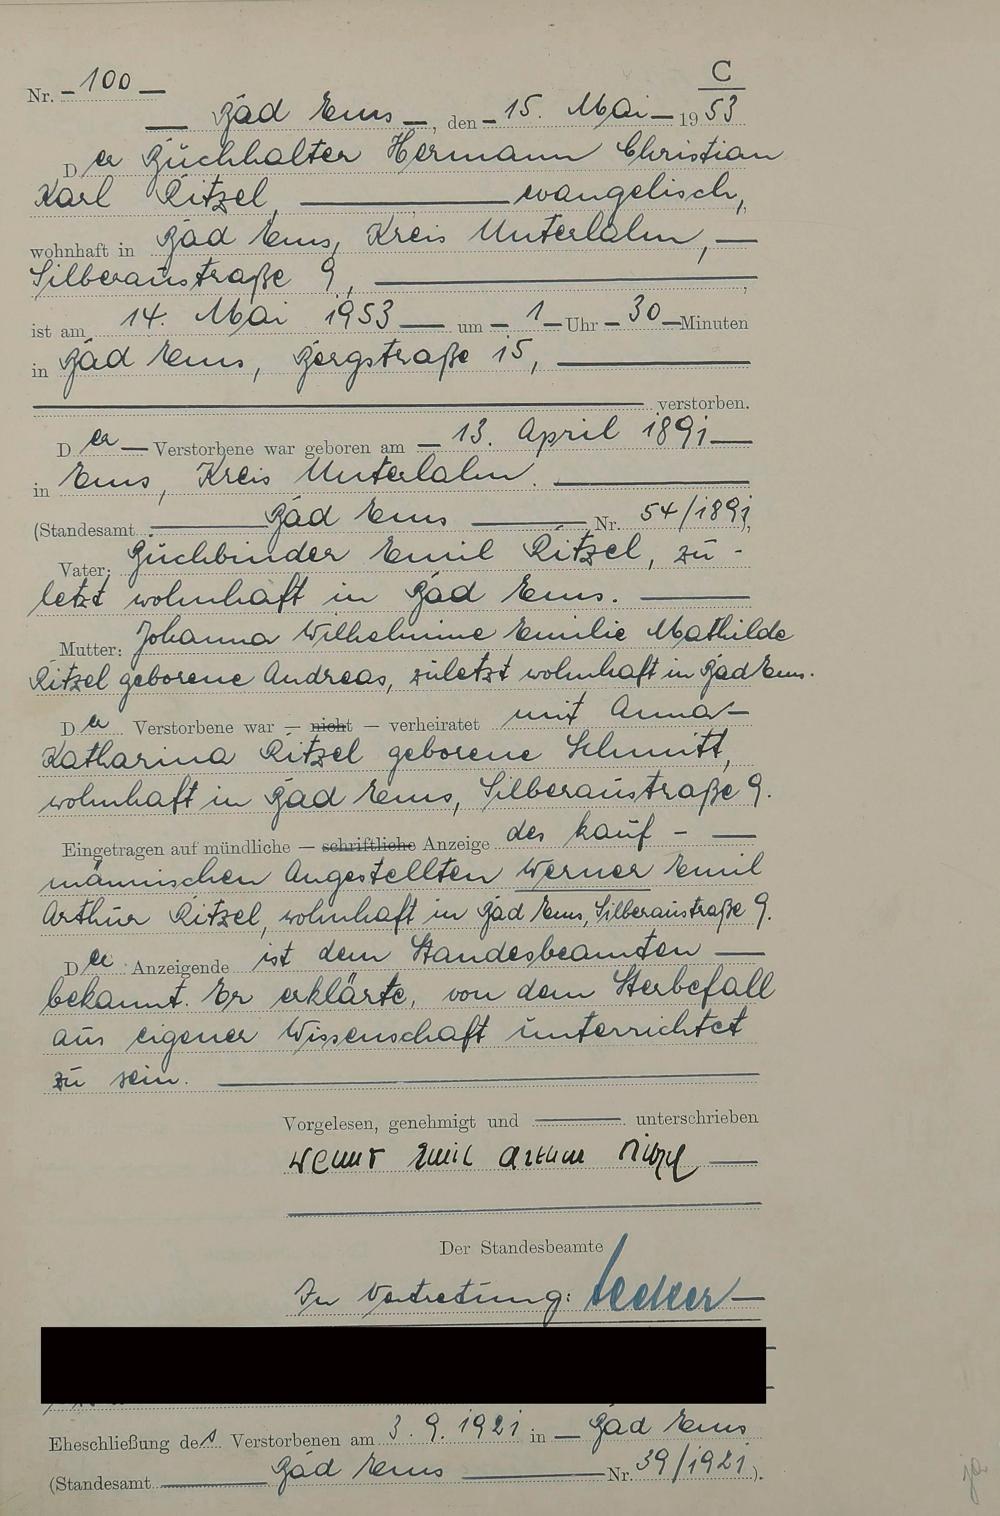 C
Nr. - 100 —
— Bad Ems —, den - 15. Mai — 19 53
Der Buchhalter Hermann Christian
Karl Ritzel, ——— evangelisch,
wohnhaft in Bad Ems, Kreis Unterlahn, —
Silberaustraße 9, ———
ist am 14. Mai 1953 — um — 1 — Uhr — 30 — Minuten
in Bad Ems, Bergstraße 15, ———
——— verstorben.
Der — Verstorbene war geboren am — 13. April 1891 —
in Ems, Kreis Unterlahn. ———
(Standesamt ——— Bad Ems ——— Nr. 54/1891)
Vater: Buchbinder Emil Ritzel, zu-
letzt wohnhaft in Bad Ems. ———
Mutter: Johanna Wilhelmine Emilie Mathilde
Ritzel geborene Andreas, zuletzt wohnhaft in Bad Ems.
Der Verstorbene war — nicht — verheiratet mit Anna —
Katharina Ritzel geborene Schmitt,
wohnhaft in Bad Ems, Silberaustraße 9.
Eingetragen auf mündliche — schriftliche Anzeige des kauf- —
männischen Angestellten Werner Emil
Arthur Ritzel, wohnhaft in Bad Ems, Silberaustraße 9.
Der Anzeigende ist dem Standesbeamten —
bekannt. Er erklärte, von dem Sterbefall
aus eigener Wissenschaft unterrichtet
zu sein. ———
Vorgelesen, genehmigt und ——— unterschrieben
Werner Emil Arthur Ritzel —
Der Standesbeamte
In Vertretung: —
Eheschließung des Verstorbenen am 3. 9. 1921 in — Bad Ems
(Standesamt ——— Bad Ems ——— Nr. 39/1921).